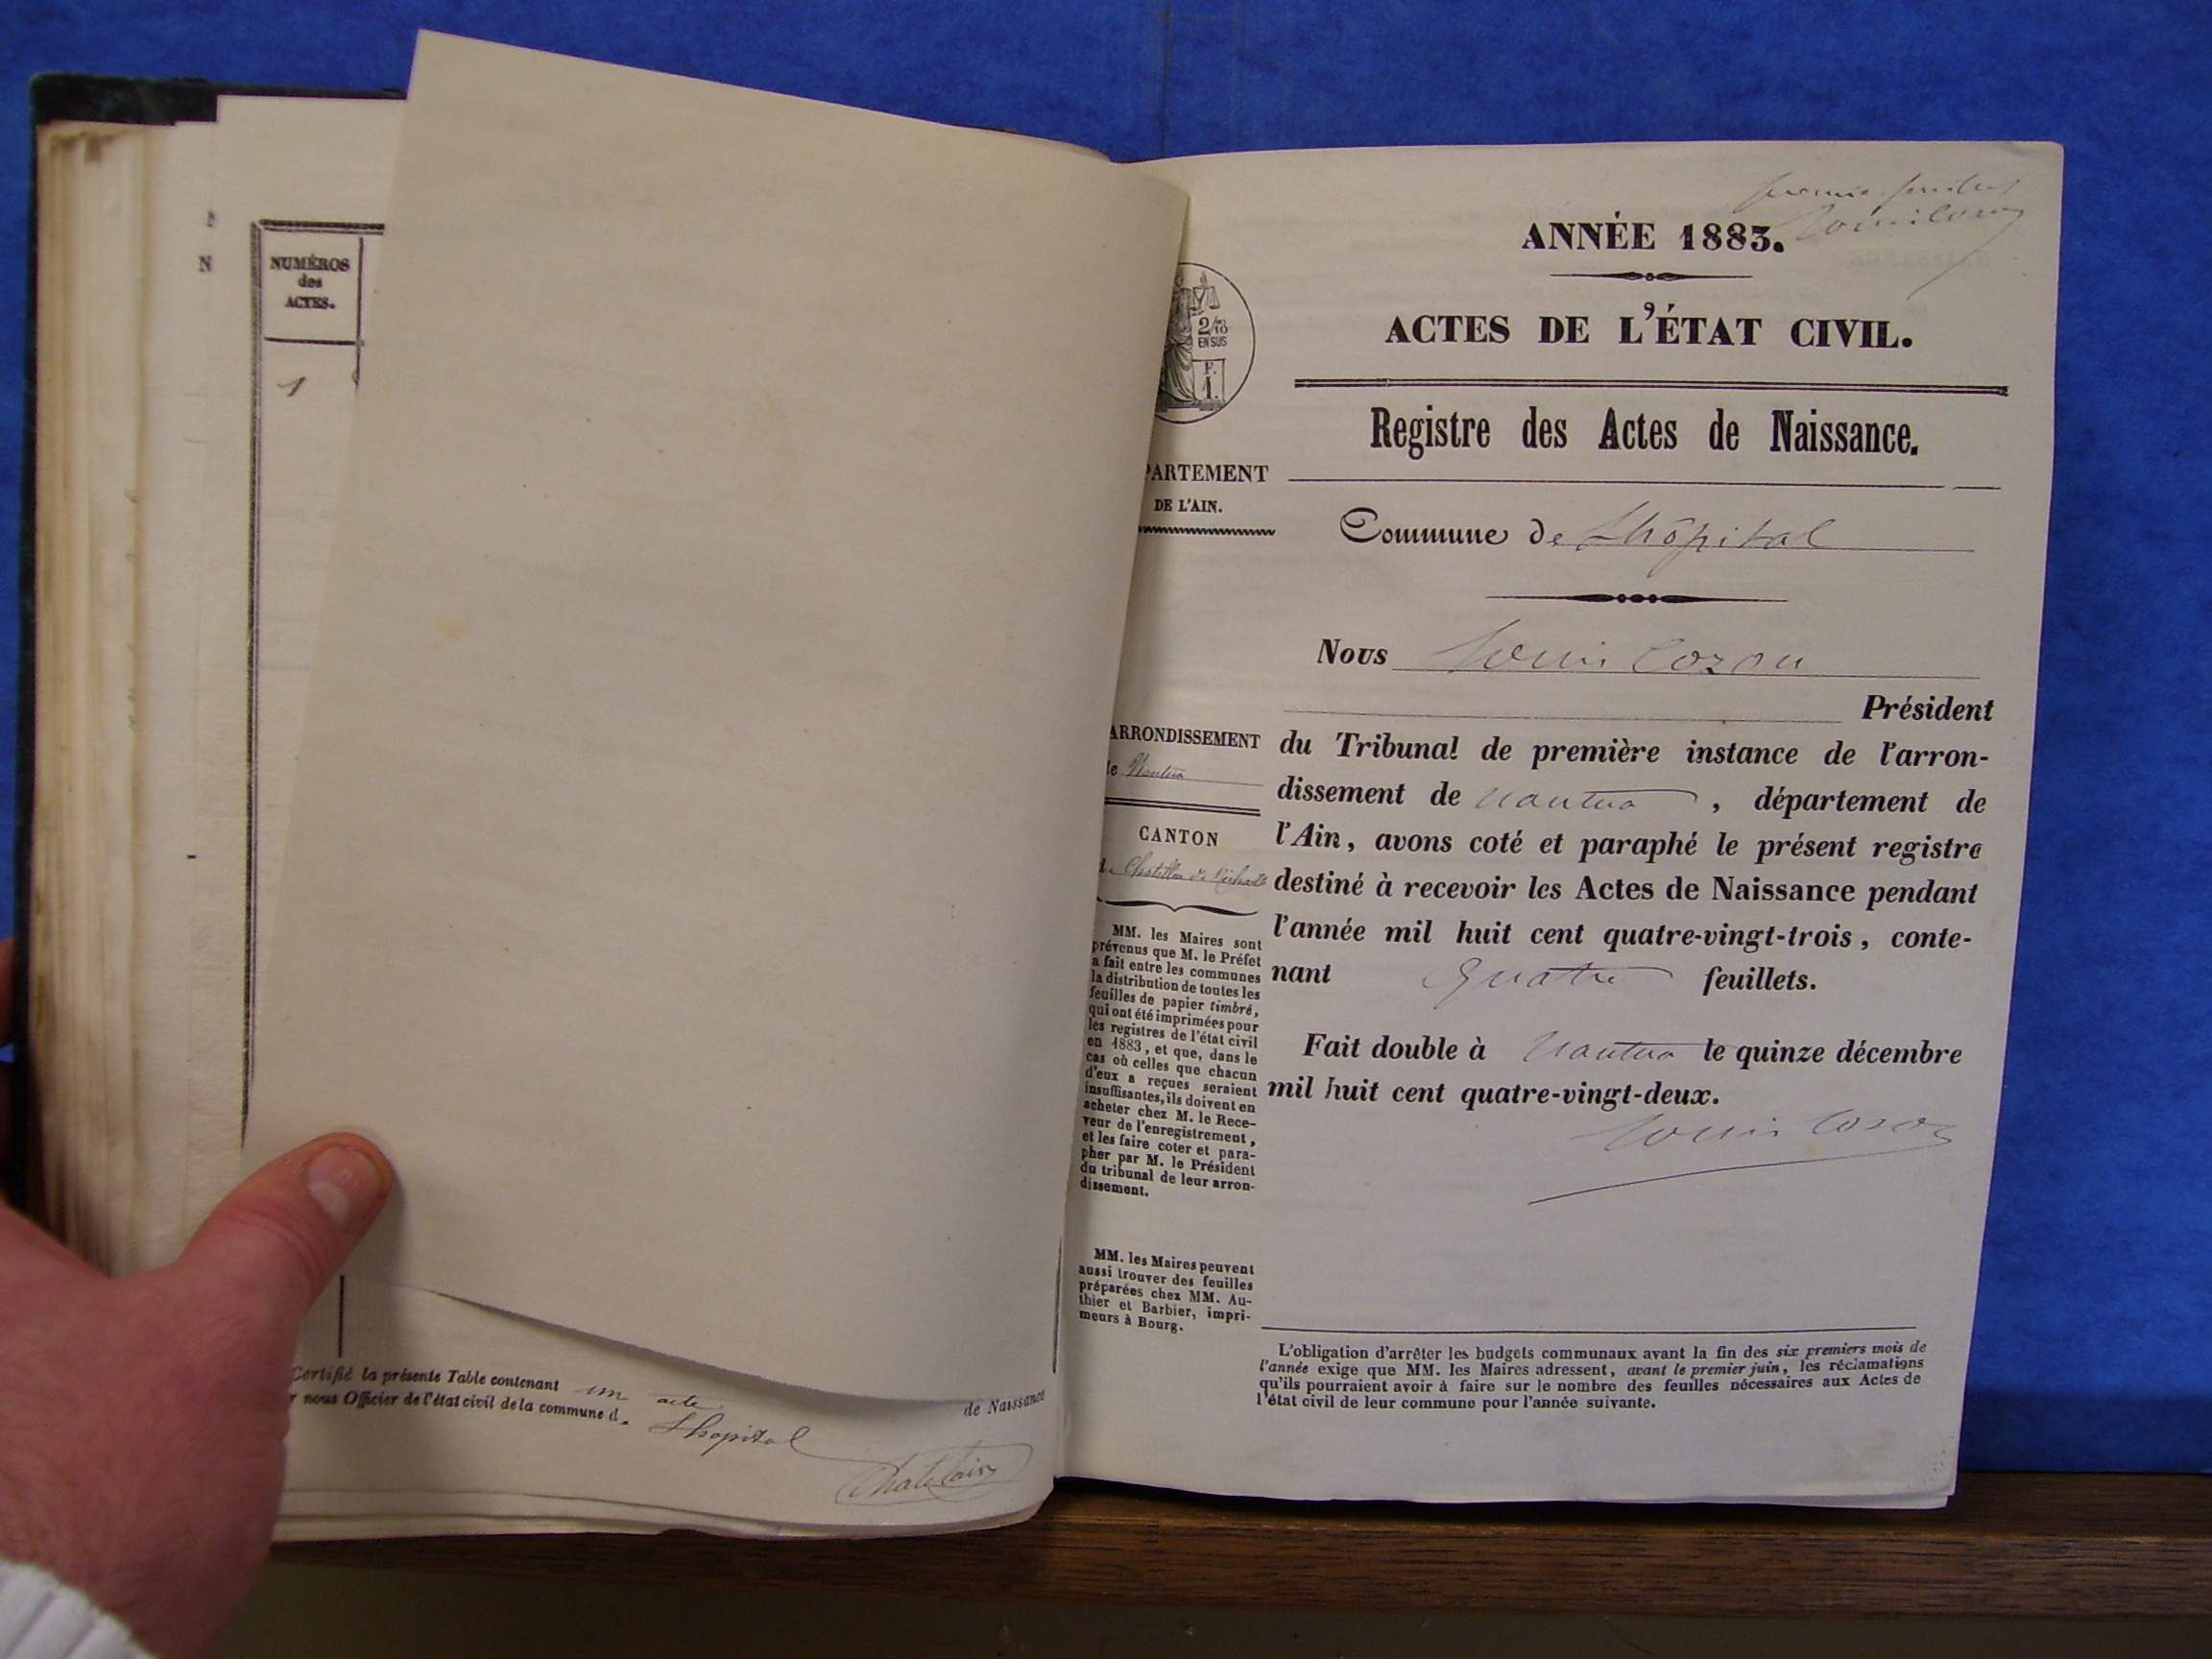 NUMÉROS
des
ACTES.
1
Certifié la présente Table contenant un acte de Naissance
r nous Officier de l'état civil de la commune d. Lhopital
Chatelain
premier feuillet
Louis Cozon
ANNÉE 1883.
2/10
EN SUS
F.
1.
ACTES DE L'ÉTAT CIVIL.
Registre des Actes de Naissance.
PARTEMENT
DE L'AIN.
Commune de Lhôpital
Nous Louis Cozon
Président
ARRONDISSEMENT
de Nantua
CANTON
de Chatillon de Michaille
du Tribunal de première instance de l'arron-
dissement de Nantua, département de
l'Ain, avons coté et paraphé le présent registre
destiné à recevoir les Actes de Naissance pendant
l'année mil huit cent quatre-vingt-trois, conte-
nant Quatre feuillets.
Fait double à Nantua le quinze décembre
mil huit cent quatre-vingt-deux.
Louis Cozon
MM. les Maires sont
prévenus que M. le Préfet
a fait entre les communes
la distribution de toutes les
feuilles de papier timbré,
qui ont été imprimées pour
les registres de l'état civil
en 1883, et que, dans le
cas où celles que chacun
d'eux a reçues seraient
insuffisantes, ils doivent en
acheter chez M. le Rece-
veur de l'enregistrement,
et les faire coter et para-
pher par M. le Président
du tribunal de leur arron-
dissement.
MM. les Maires peuvent
aussi trouver des feuilles
préparées chez MM. Au-
thier et Barbier, impri-
meurs à Bourg.
L'obligation d'arrêter les budgets communaux avant la fin des six premiers mois de
l'année exige que MM. les Maires adressent, avant le premier juin, les réclamations
qu'ils pourraient avoir à faire sur le nombre des feuilles nécessaires aux Actes de
l'état civil de leur commune pour l'année suivante.